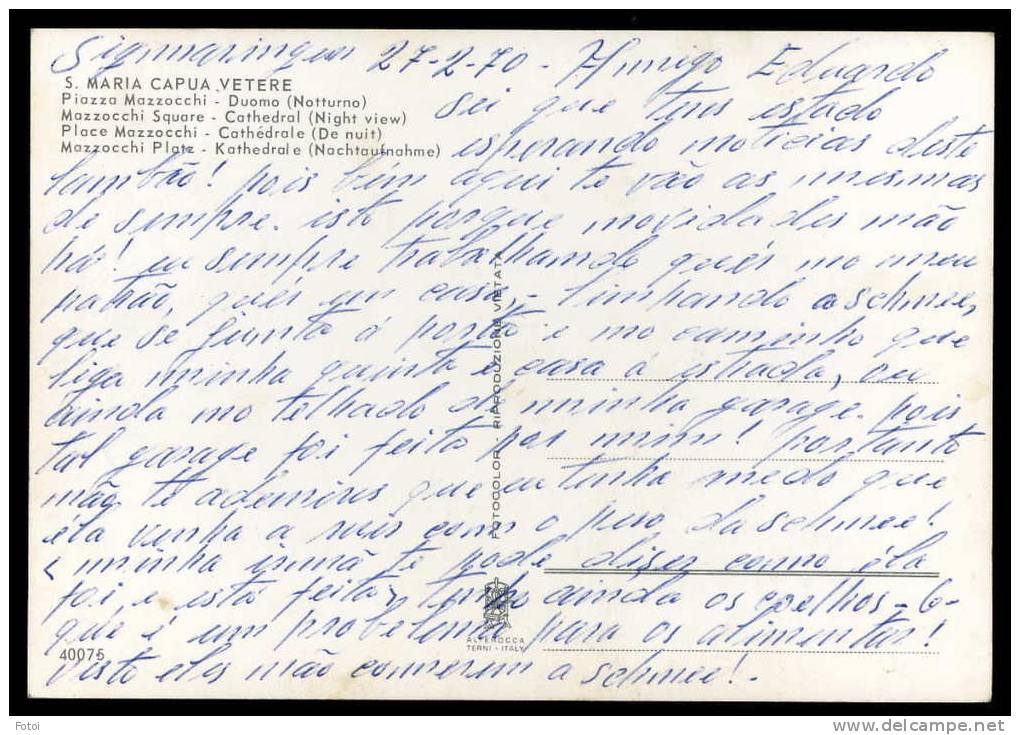 Sigmaringen 27-2-70 - Amigo Eduardo
S. MARIA CAPUA VETERE
Piazza Mazzocchi - Duomo (Notturno)
Mazzocchi Square - Cathedral (Night view)
Place Mazzocchi - Cathédrale (De nuit)
Mazzocchi Platz - Kathedrale (Nachtaufnahme)
sei que tens estado
esperando noticias deste
lambão! pois bém aqui te vão as mesmas
de sempre. isto porque novidades não
há! eu sempre trabalhando quér no meu
patrão, quér em casa,- limpando a schnee,
que se junta á porta e no caminho que
liga minha quinta e casa á estrada, ou
ainda no telhado de minha garage. pois
tal garage foi feita por mim! portanto
não te admires que eu tenha medo que
éla venha a ruir com o peso da schnee!
minha irmã te pode diser como éla
foi, e está feita, tenho ainda os coelhos -6-
que é um probelema para os alimentar!
visto eles não comerem a schnee!-
FOTOCOLOR - RIPRODUZIONE VIETATA
ALTEROCCA
TERNI - ITALY
40075
Fotoi
http://www.delcampe.net